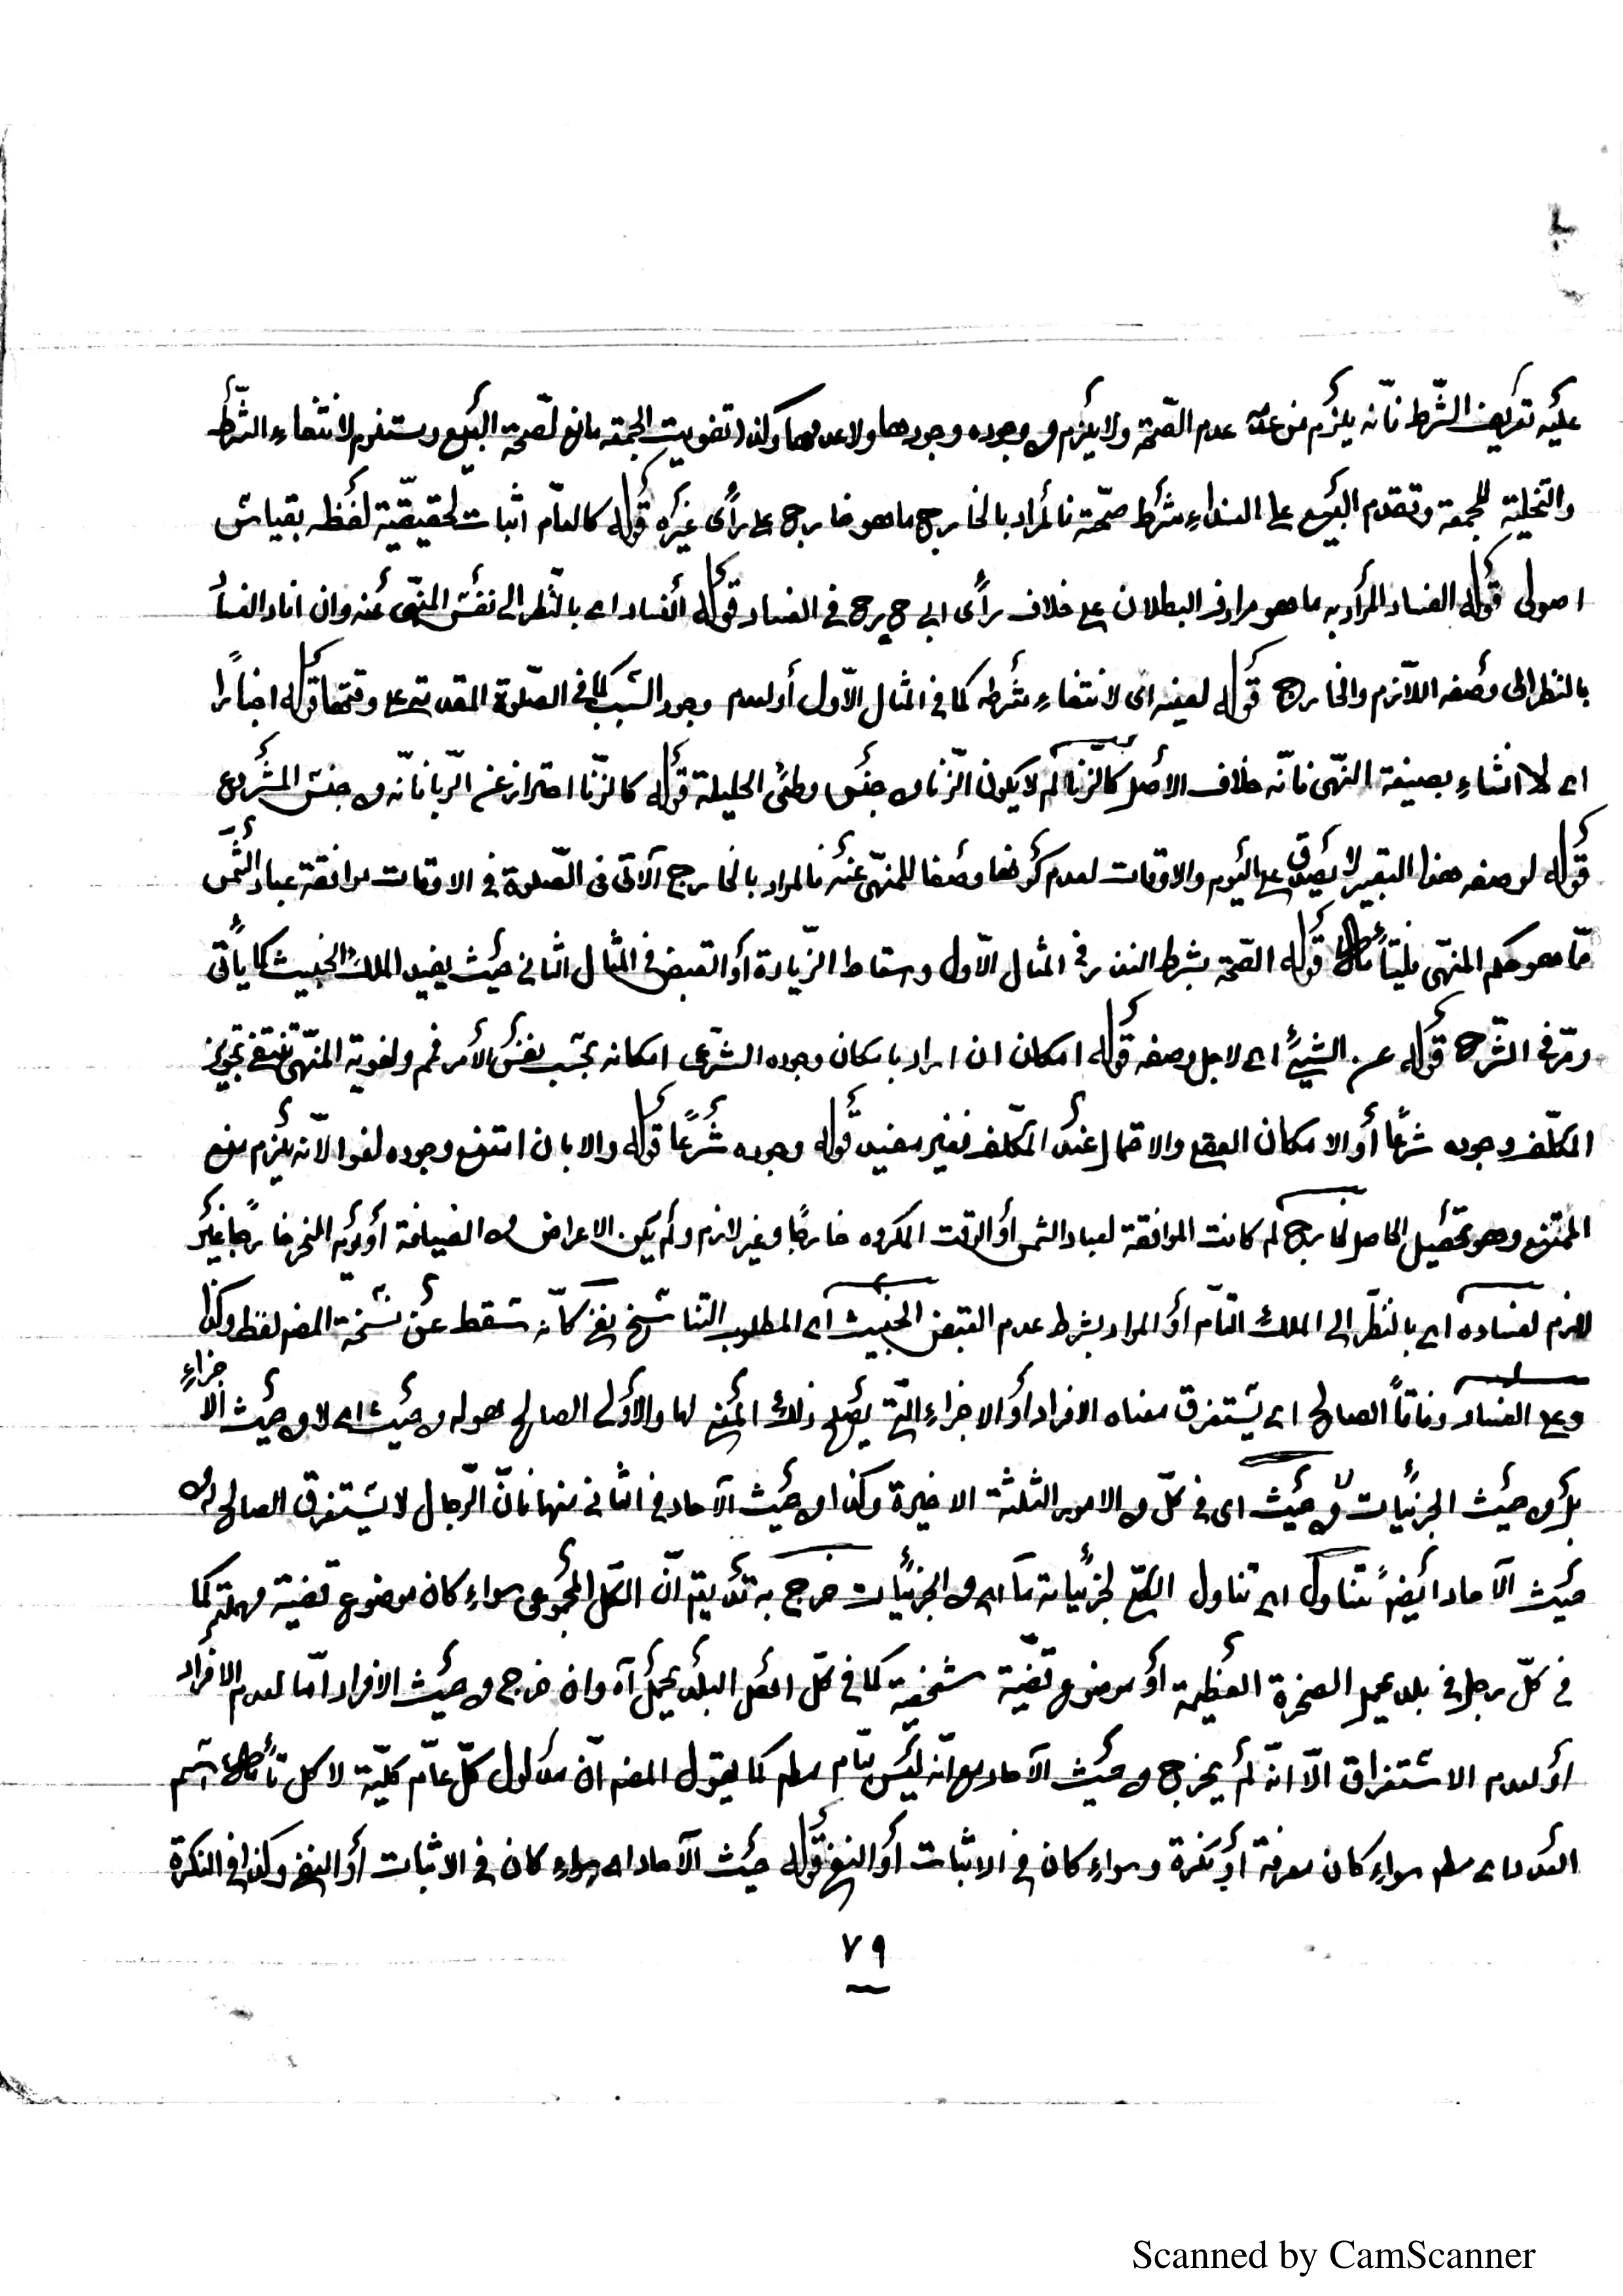 عليه تعريف الشّرط فانّه يلزم من عدمه عدم الصّحة ولا يلزم من وجوده وجودها ولا عدمها وكذا تفويت الجمعة مانع لصّحة البيع ومستلزم لانتفاء الشّرط
والتخلية للجمعة وتقدم البيع على النداء شرط صحّته فالمراد بالخارج ما هو خارج على رأى غيره قوله كالعامّ اثبات لحقيقيّة لفظه بقياس
اصولى قوله الفساد المراد به ما هو مرادف البطلان على خلاف رأى ابى ح يرج فى الفساد قوله الفساد اى بالنّظر الى نفس المنّهى عنه وان افاد الفساد
بالنظر الى وصفه اللاّزم والخارج قوله لعينه اى لانتفاء شرطه كما فى المثال الاّول أو لعدم وجود السّبب كما فى الصّلوة المقدمة على وقتها قوله اخبارًا
اى لا انشاء بصيغة النّهى فانّه خلاف الأصل كالزّنا لم لا يكون الزّنا من جنس وطئ الحليلة قوله كالزّنا احتراز عن الرّبا فانّه من جنس المشروع
قوله لوصفه هذا التعبير لا يصدق على اليوم والاوقات لعدم كونها وصفا للمنهّى عنه فالمراد بالخارج الآتى فى الصّلوة فى الاوقات موافقة عباد الشّمس
ممّا هو حكم المنهّى فليتأمل قوله الصّحة بشرط النذر فى المثال الاّول وسقاط الزّيادة أو القبض فى المثال الثانى حيث يفيد الملك الخبيث كما يأتى
ومرّ فى الشّرح قوله عن الشيئ اى لاجل وصفه قوله امكان ان اراد بامكان وجوده الشّرعى امكانه بحسب نفس الأمر فمم ولغوية المنّهى تنتفى بتجويز
المكلّف وجوده شرعًا أو الامكان العقلى والاحتمال عند المكّلف فغير مفيد قوله وجوده شرعًا قوله والا بان امتنع وجوده لغوا لانّه يلزم منع
الممتنع وهو تحصيل الحاصل لخارج لم كانت الموافقة لعباد الشمس أو الوقت المكروه خارجًا وغير لازم ولم يكن الاعراض من الضيافة أو يوم النحر خارجًا غير
لازم لفساده اى بالنظّر الى الملك التامّ أو المراد بشرط عدم القبض الخبيث اى المطلوب التناسخ نفى كأنّه سقط عن نسخة المصنف لفظ وكذا
وعلى الفساد وفاقًا الصالح اى يستغرق معناه الافراد أو الاجزاء الّتى يصلح ذلك المعنى لها والأولى الصالح هو له من حيث اى لا من حيث الاجزاء
بل من حيث الجزئيّات لا من حيث اى فى كلّ من الامور الثلثة الاخيرة وكذا من حيث الآحاد فى الثانى منها فانّ الرّجال لا يستغرق الصالح له من
حيث الآحاد أيضًا تناول اى تناول الكلّى لجزئياته ما اى من الجزئيّات خرج به قد يتم انّ الكلّ المجموعى سواء كان موضوع قضيّة مهملة كما
فى كلّ رجل فى بلد يحمل الصخرة العظيمة أو موضوع قضيّة شخصيّة كما فى كلّ اهل البلد يحمل آه وان خرج من حيث الافراد امّا لعدم الافراد
أو لعدم الاستغراق الاّ انّه لم يخرج من حيث الآحاد مع انّه ليس بعامّ مطم كما يقول المصنف انّ مدلول كلّ عامّ كليّة لا كل تأمل اسم
العدد اى مطم سواء كان معرفة أو نكرة وسواء كان فى الاثبات أو النفى قوله حيث الآحاد اى سواء كان فى الاثبات أو النفى وكذا فى النكرة
٧٩
Scanned by CamScanner